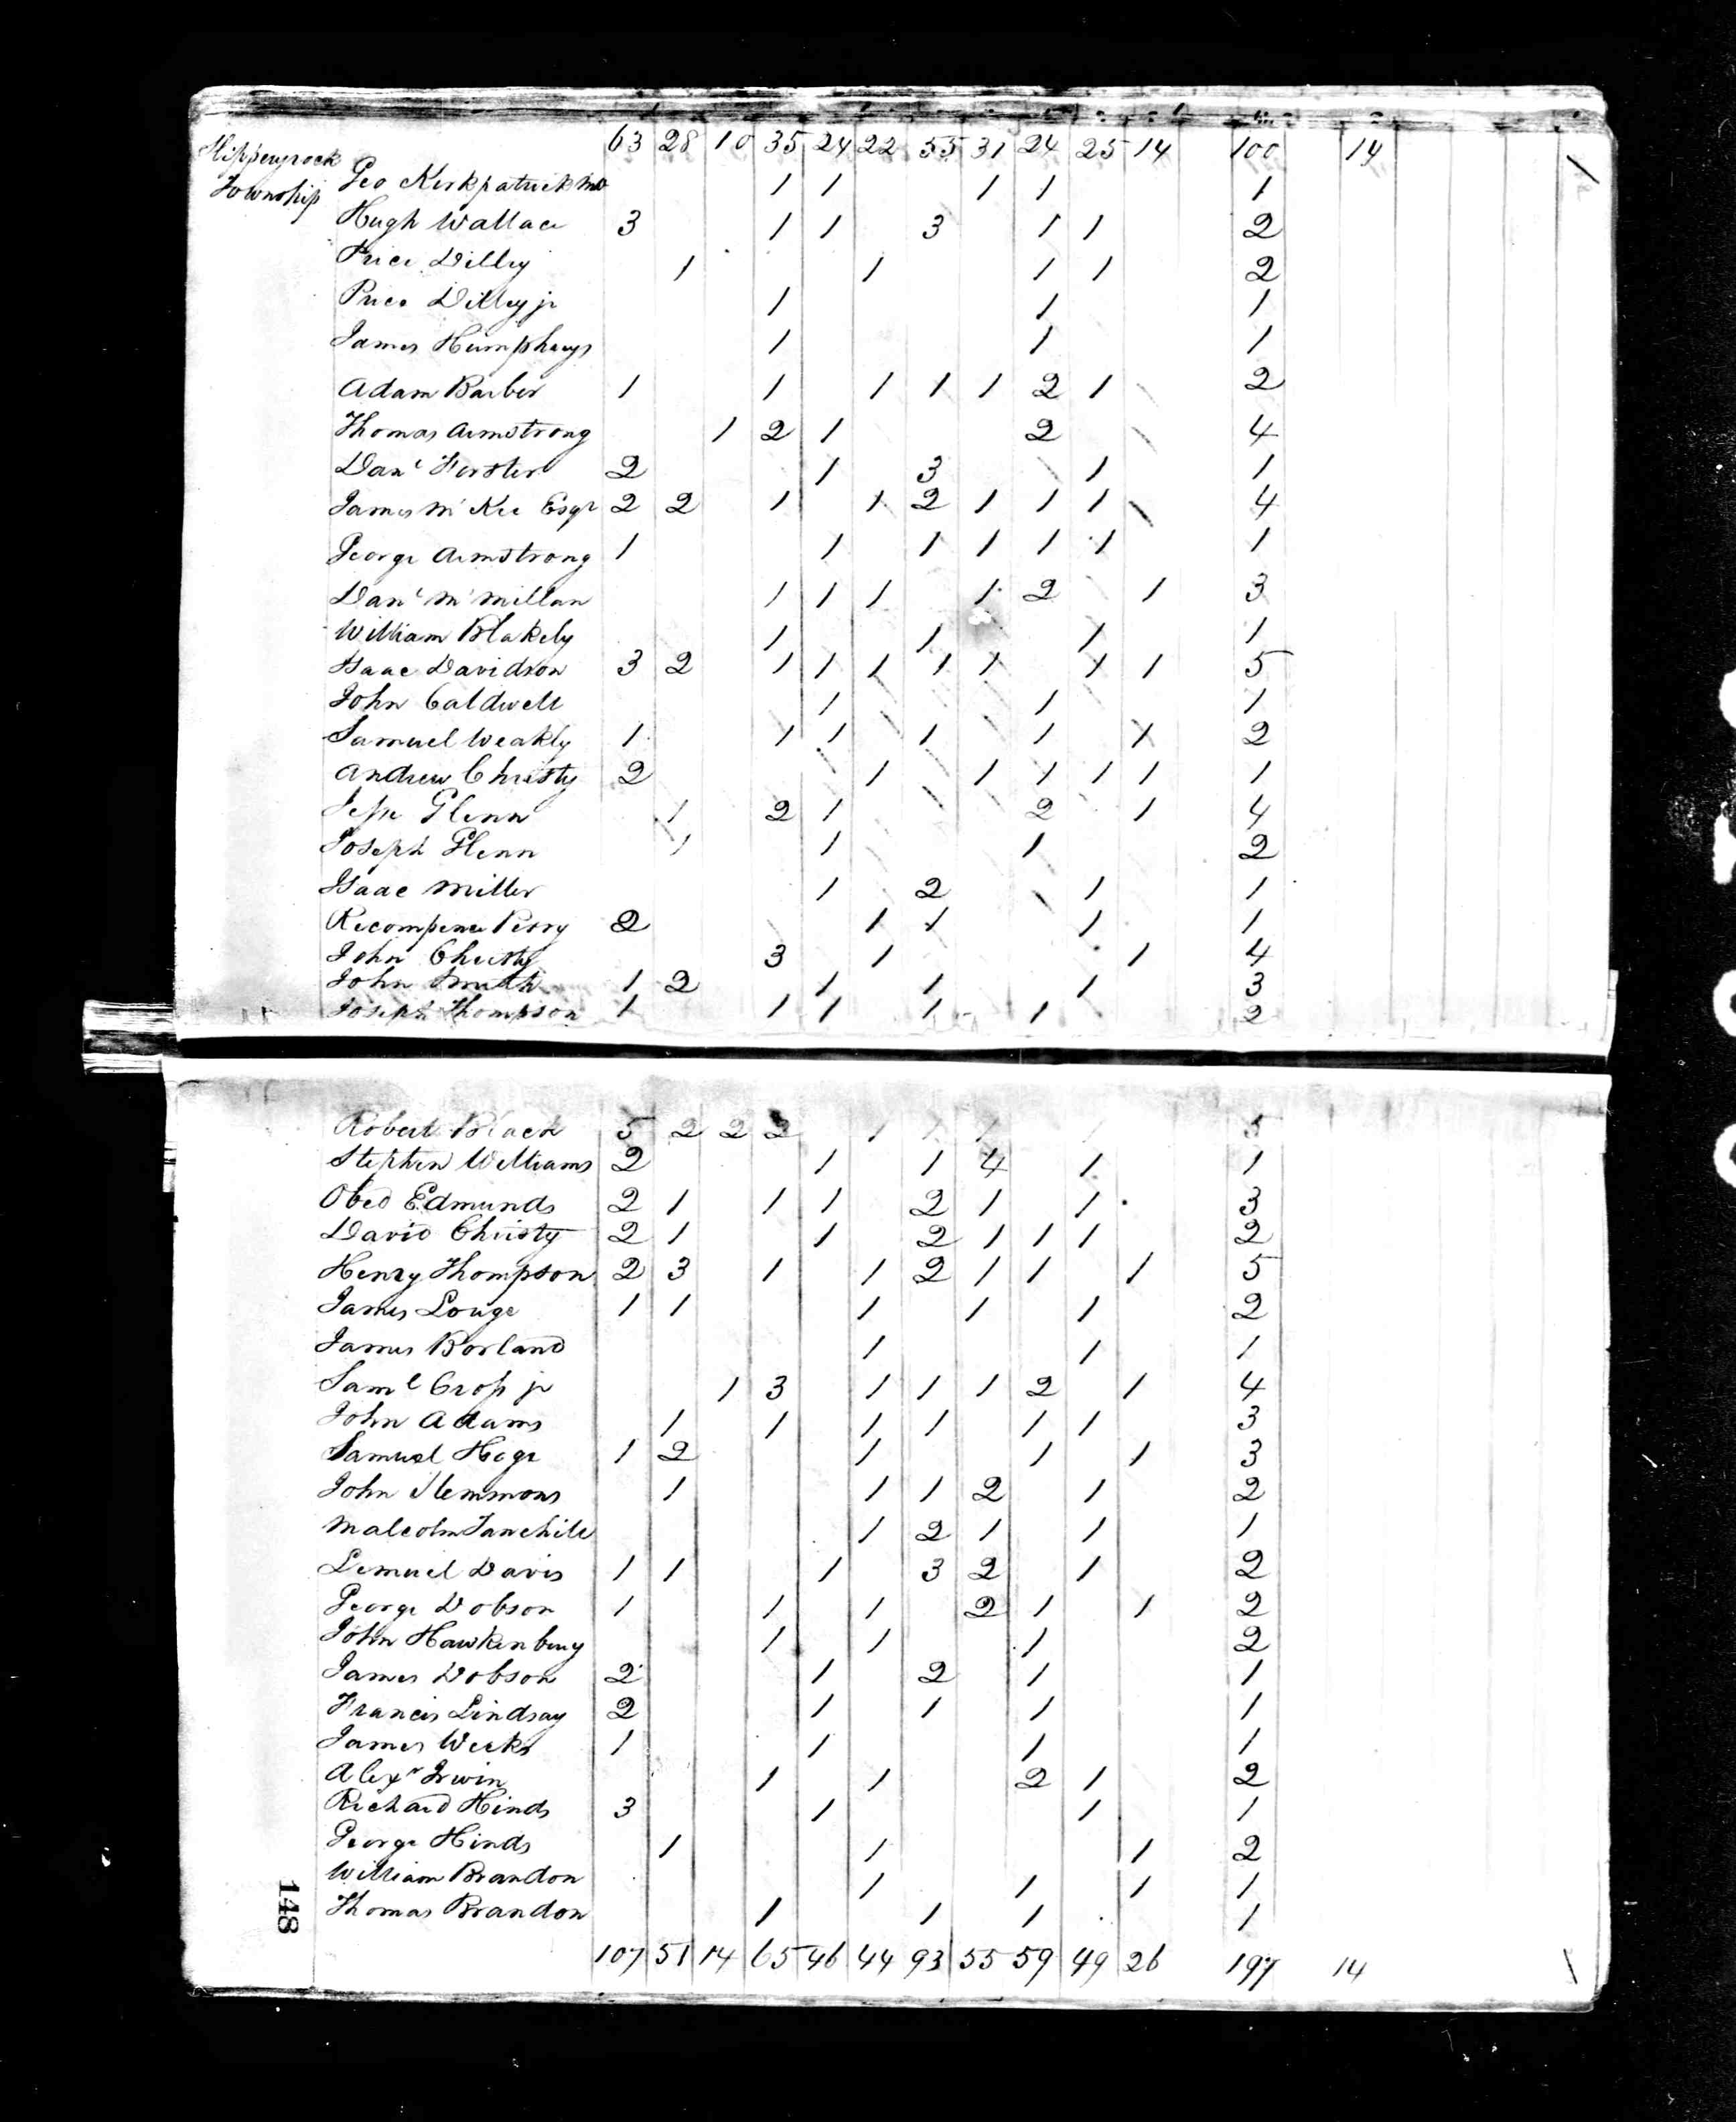 63 28 10 35 24 22 55 31 24 25 14 100 14
Slipperyrock
Township
Geo Kirkpatrick 1 1 1 1 1
Hugh Wallace 3 1 1 3 1 1 2
Price Dilley 1 1 1 1 2
Price Dilley jr 1 1 1
James Humphreys 1 1 1
Adam Barber 1 1 1 1 1 2 1 2
Thomas Armstrong 1 2 1 2 4
Danl Forster 2 1 3 1 1
James McKee Esqr 2 2 1 1 2 1 1 1 4
George Armstrong 1 1 1 1 1 1 1
Danl McMillan 1 1 1 1 2 1 3
William Blakely 1 1 1 1
Isaac Davidson 3 2 1 1 1 1 1 1 1 5
John Caldwell 1 1 1
Samuel Weakly 1 1 1 1 1 1 2
Andrew Christy 2 1 1 1 1 1 1
Jesse Glenn 1 2 1 2 1 4
Joseph Glenn 1 1 1 2
Isaac Miller 1 2 1 1
Recompence Perry 2 1 1 1 1
John Christy 3 1 1 4
John Smith 1 2 1 1 1 3
Joseph Thompson 1 1 1 1 1 2
Robert Black 5 2 2 2 1 1 1 1 5
Stephen Williams 2 1 1 4 1 1
Obed Edmunds 2 1 1 1 2 1 1 3
David Christy 2 1 1 2 1 1 1 2
Henry Thompson 2 3 1 1 2 1 1 1 5
James Louge 1 1 1 1 1 2
James Borland 1 1 1
Saml Cross jr 1 3 1 1 1 2 1 4
John Adams 1 1 1 1 1 1 3
Samuel Hoge 1 2 1 1 1 3
John Slemmons 1 1 1 2 1 2
Malcolm 1 2 1 1 1
Lemuel Davis 1 1 1 3 2 1 2
George Dobson 1 1 1 2 1 1 2
John Hawkenbery 1 1 1 2
James Dobson 2 1 2 1 1
Francis Lindsay 2 1 1 1 1
James Weeks 1 1 1 1
Alexr Irwin 1 1 2 1 2
Richard Hinds 3 1 1 1
George Hinds 1 1 1 2
William Brandon 1 1 1 1
Thomas Brandon 1 1 1 1
148
107 51 14 65 46 44 93 55 59 49 26 197 14